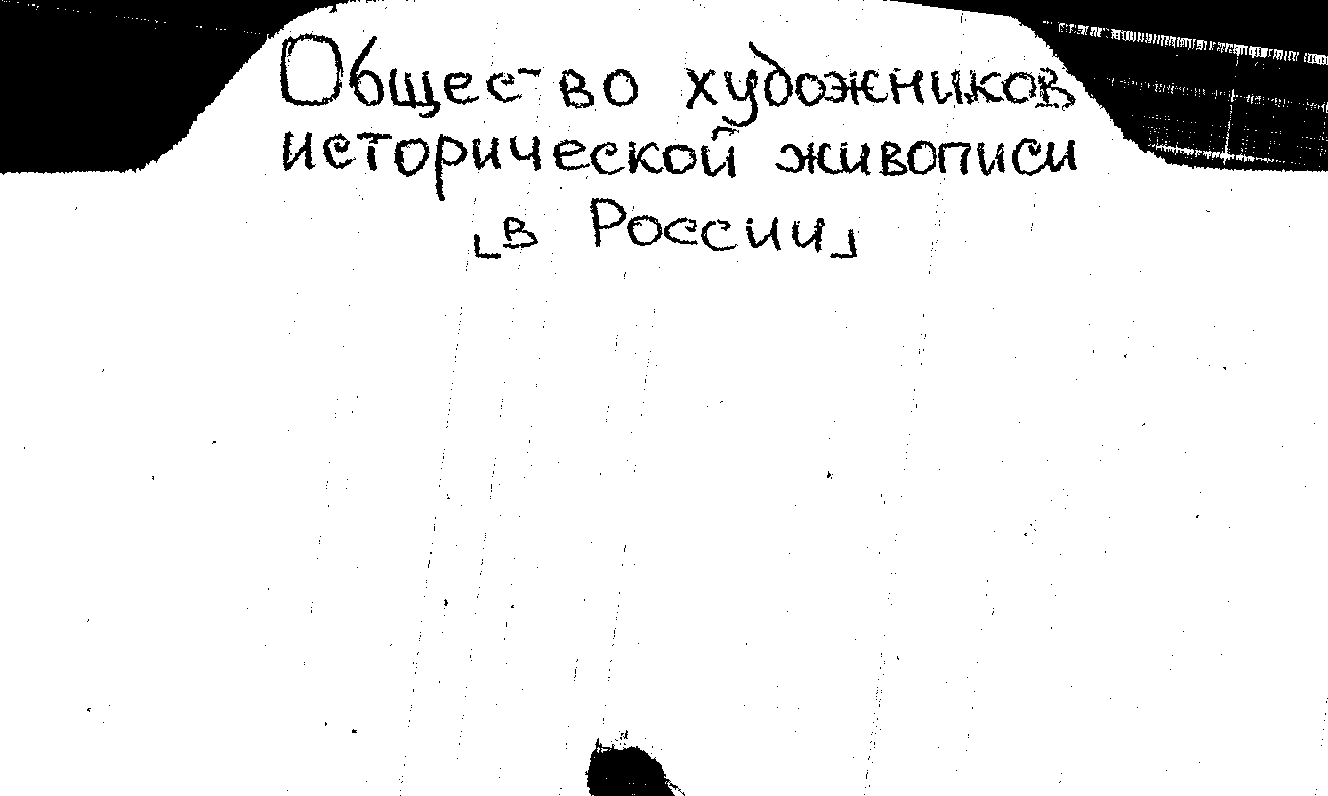 Общес-во художников
исторической живописи
[в России]